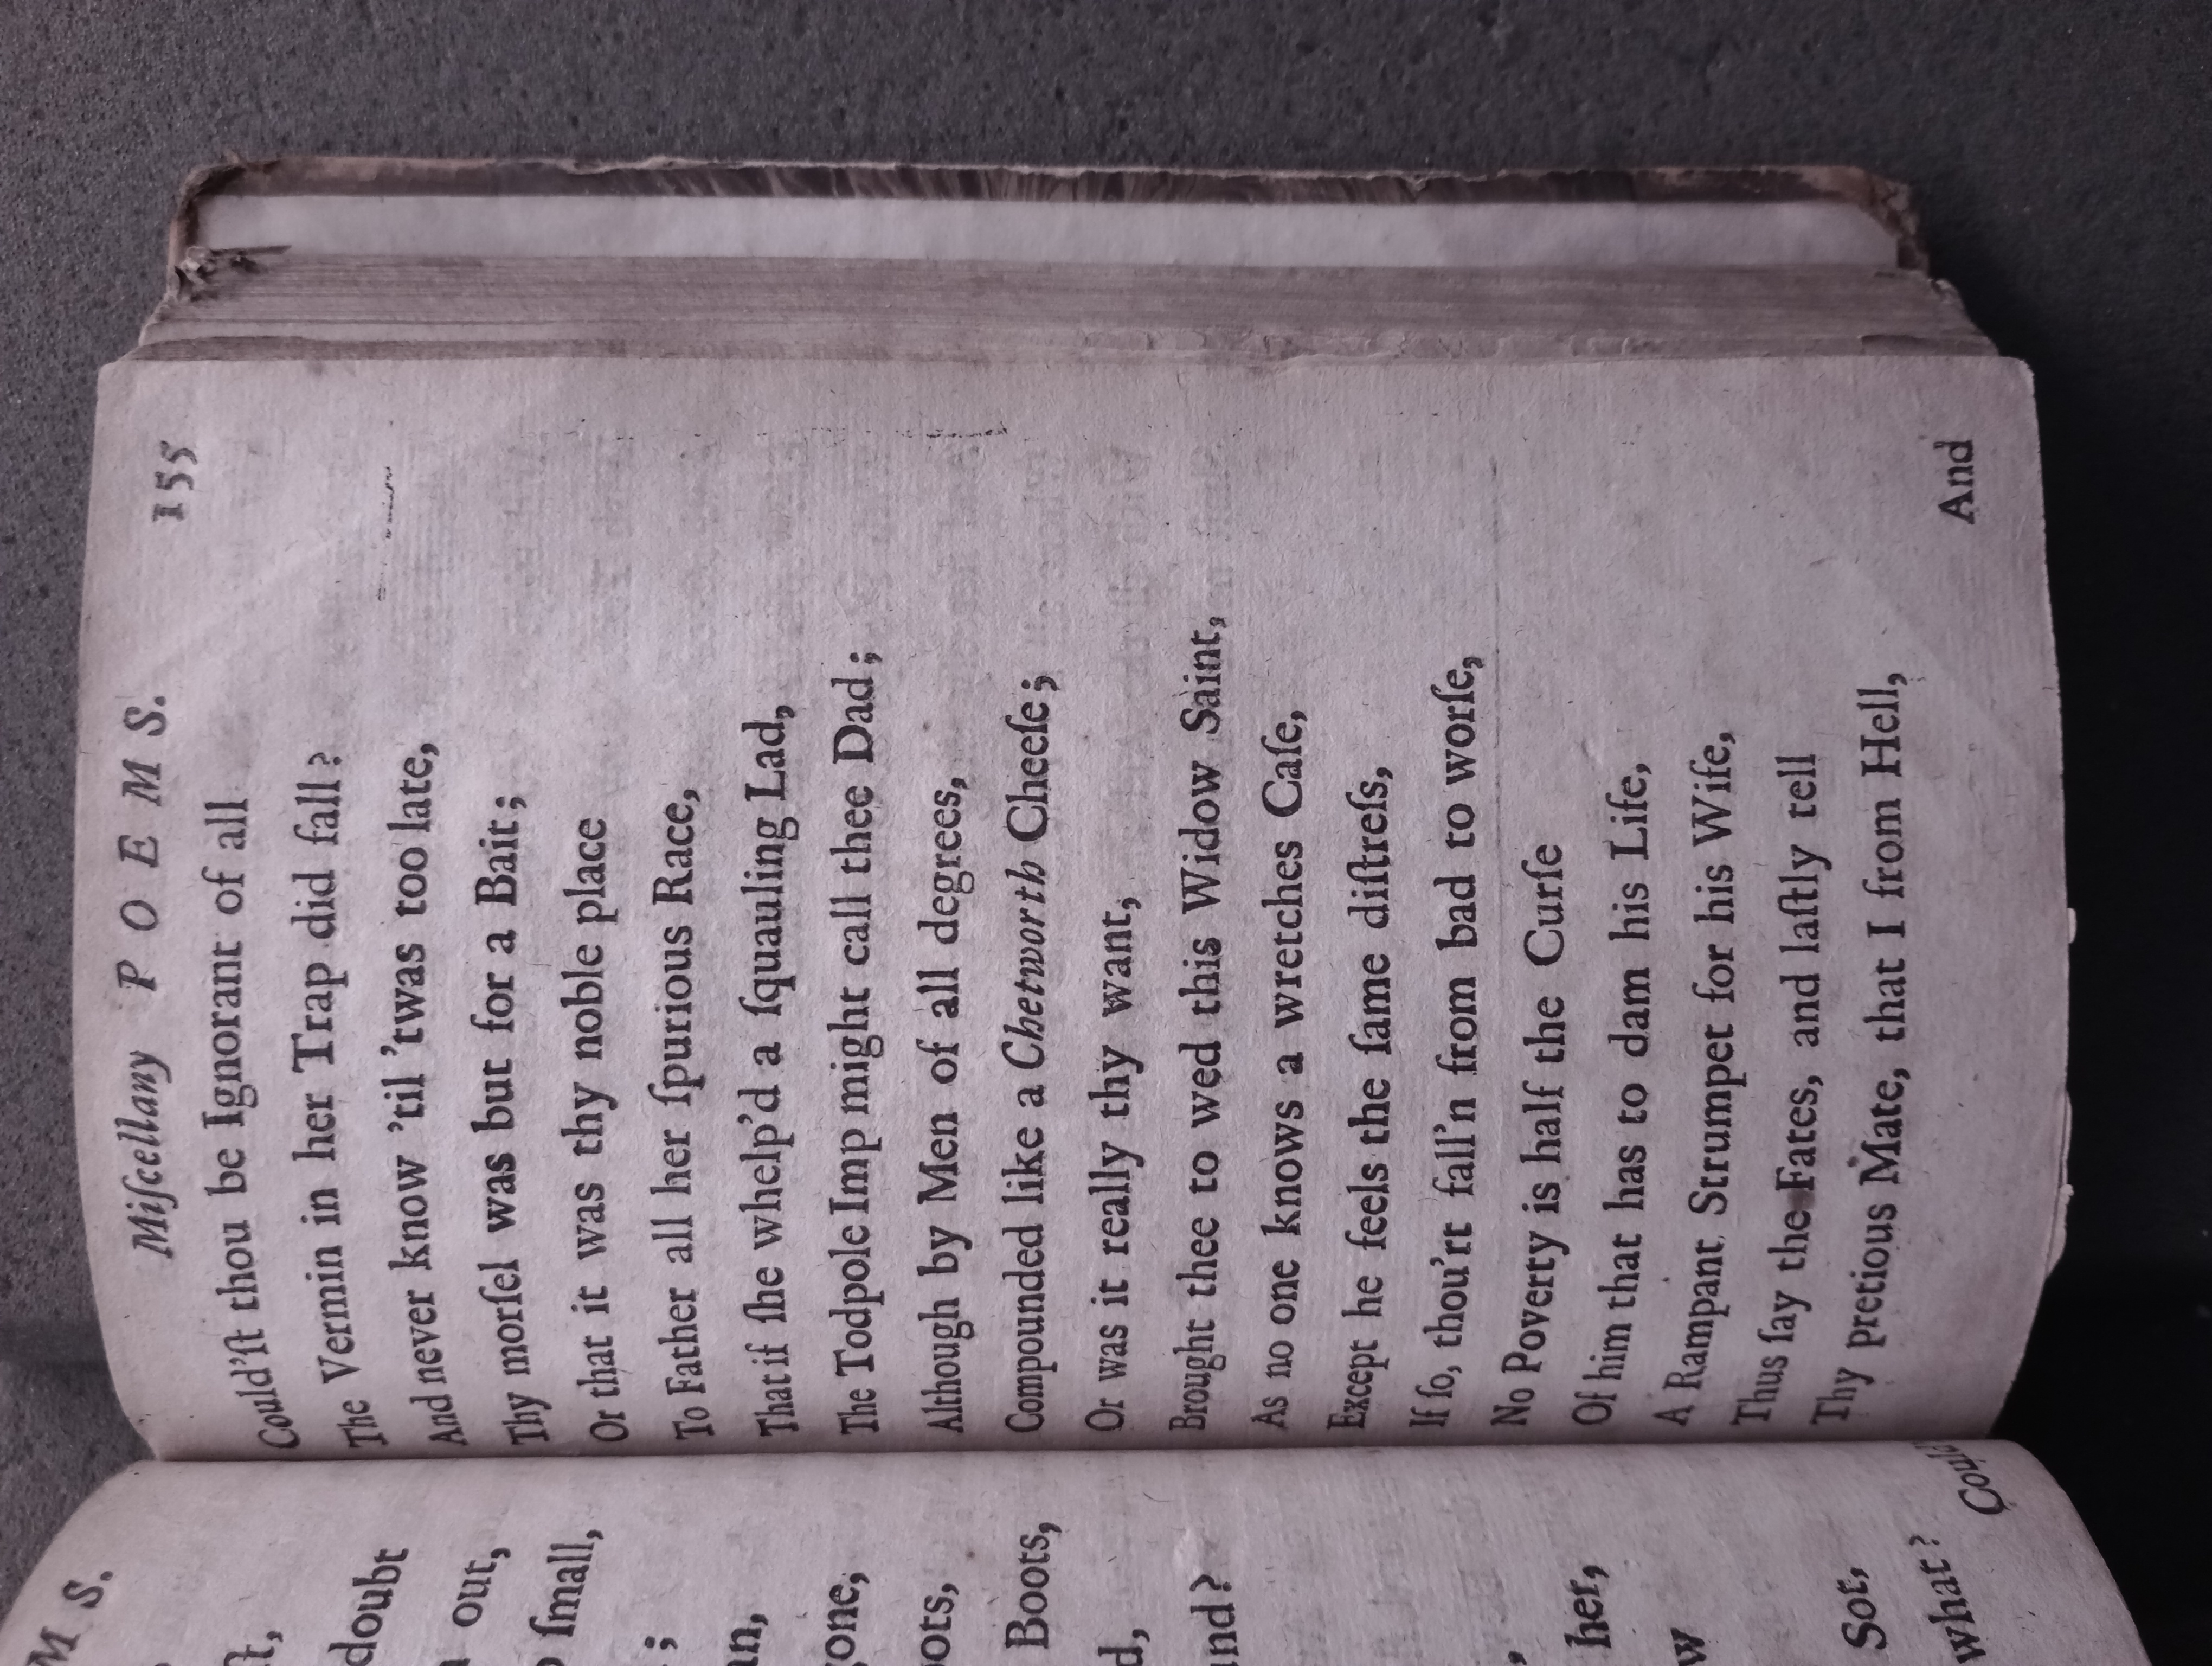 M S.
doubt
out,
ſmall,
;
gone,
Boots,
her,
Sot,
what?
Could'
Miſcellany P O E M S. 155
Could'ſt thou be Ignorant of all
The Vermin in her Trap did fall?
And never know 'til 'twas too late,
Thy morſel was but for a Bait;
Or that it was thy noble place
To Father all her ſpurious Race,
That if ſhe whelp'd a ſquauling Lad,
The Todpole Imp might call thee Dad;
Although by Men of all degrees,
Compounded like a Chetworth Cheeſe;
Or was it really thy want,
Brought thee to wed this Widow Saint,
As no one knows a wretches Caſe,
Except he feels the ſame diſtreſs,
If ſo, thou'rt fall'n from bad to worſe,
No Poverty is half the Curſe
Of him that has to dam his Life,
A Rampant Strumpet for his Wife,
Thus ſay the Fates, and laſtly tell
Thy pretious Mate, that I from Hell,
And